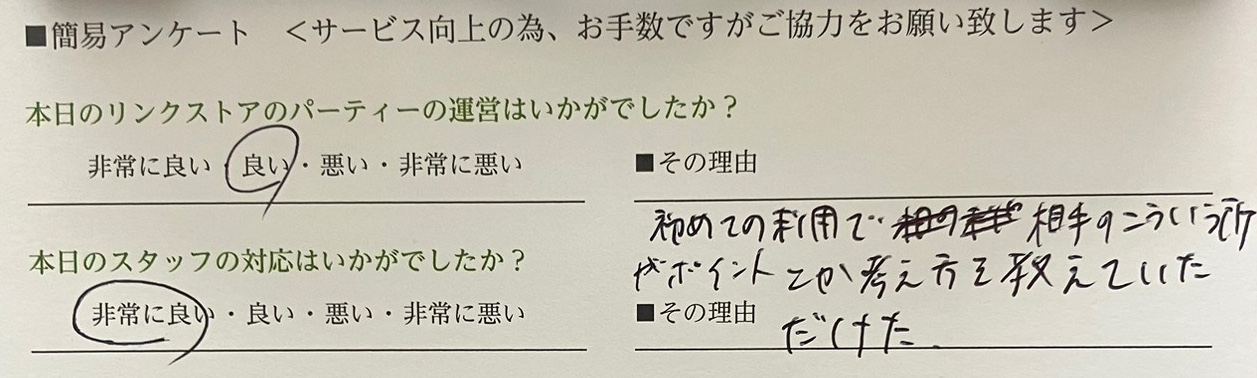 ■簡易アンケート ＜サービス向上の為、お手数ですがご協力をお願い致します＞
本日のリンクストアのパーティーの運営はいかがでしたか？
非常に良い・良い・悪い・非常に悪い
■その理由
初めての利用で 相手のこういう所
がポイントとか考え方を教えていた
だけた.
本日のスタッフの対応はいかがでしたか？
非常に良い・良い・悪い・非常に悪い
■その理由